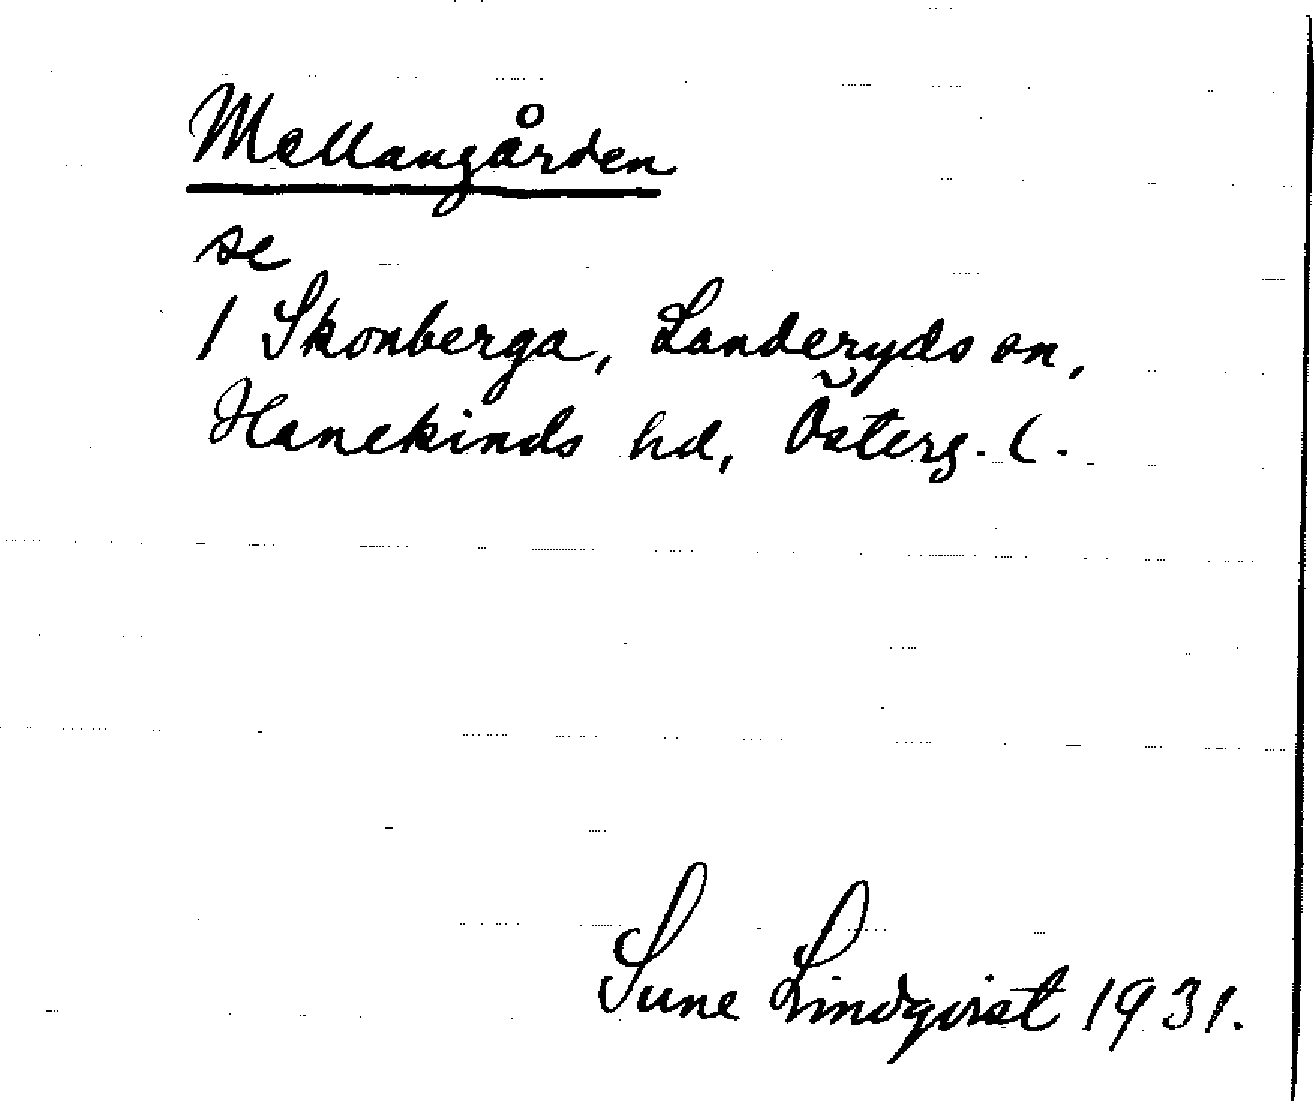 Mellangården
se
1 Skonberga, Landeryds sn,
Hanekinds hd, Österg. l.
Sune Lindqvist 1931.